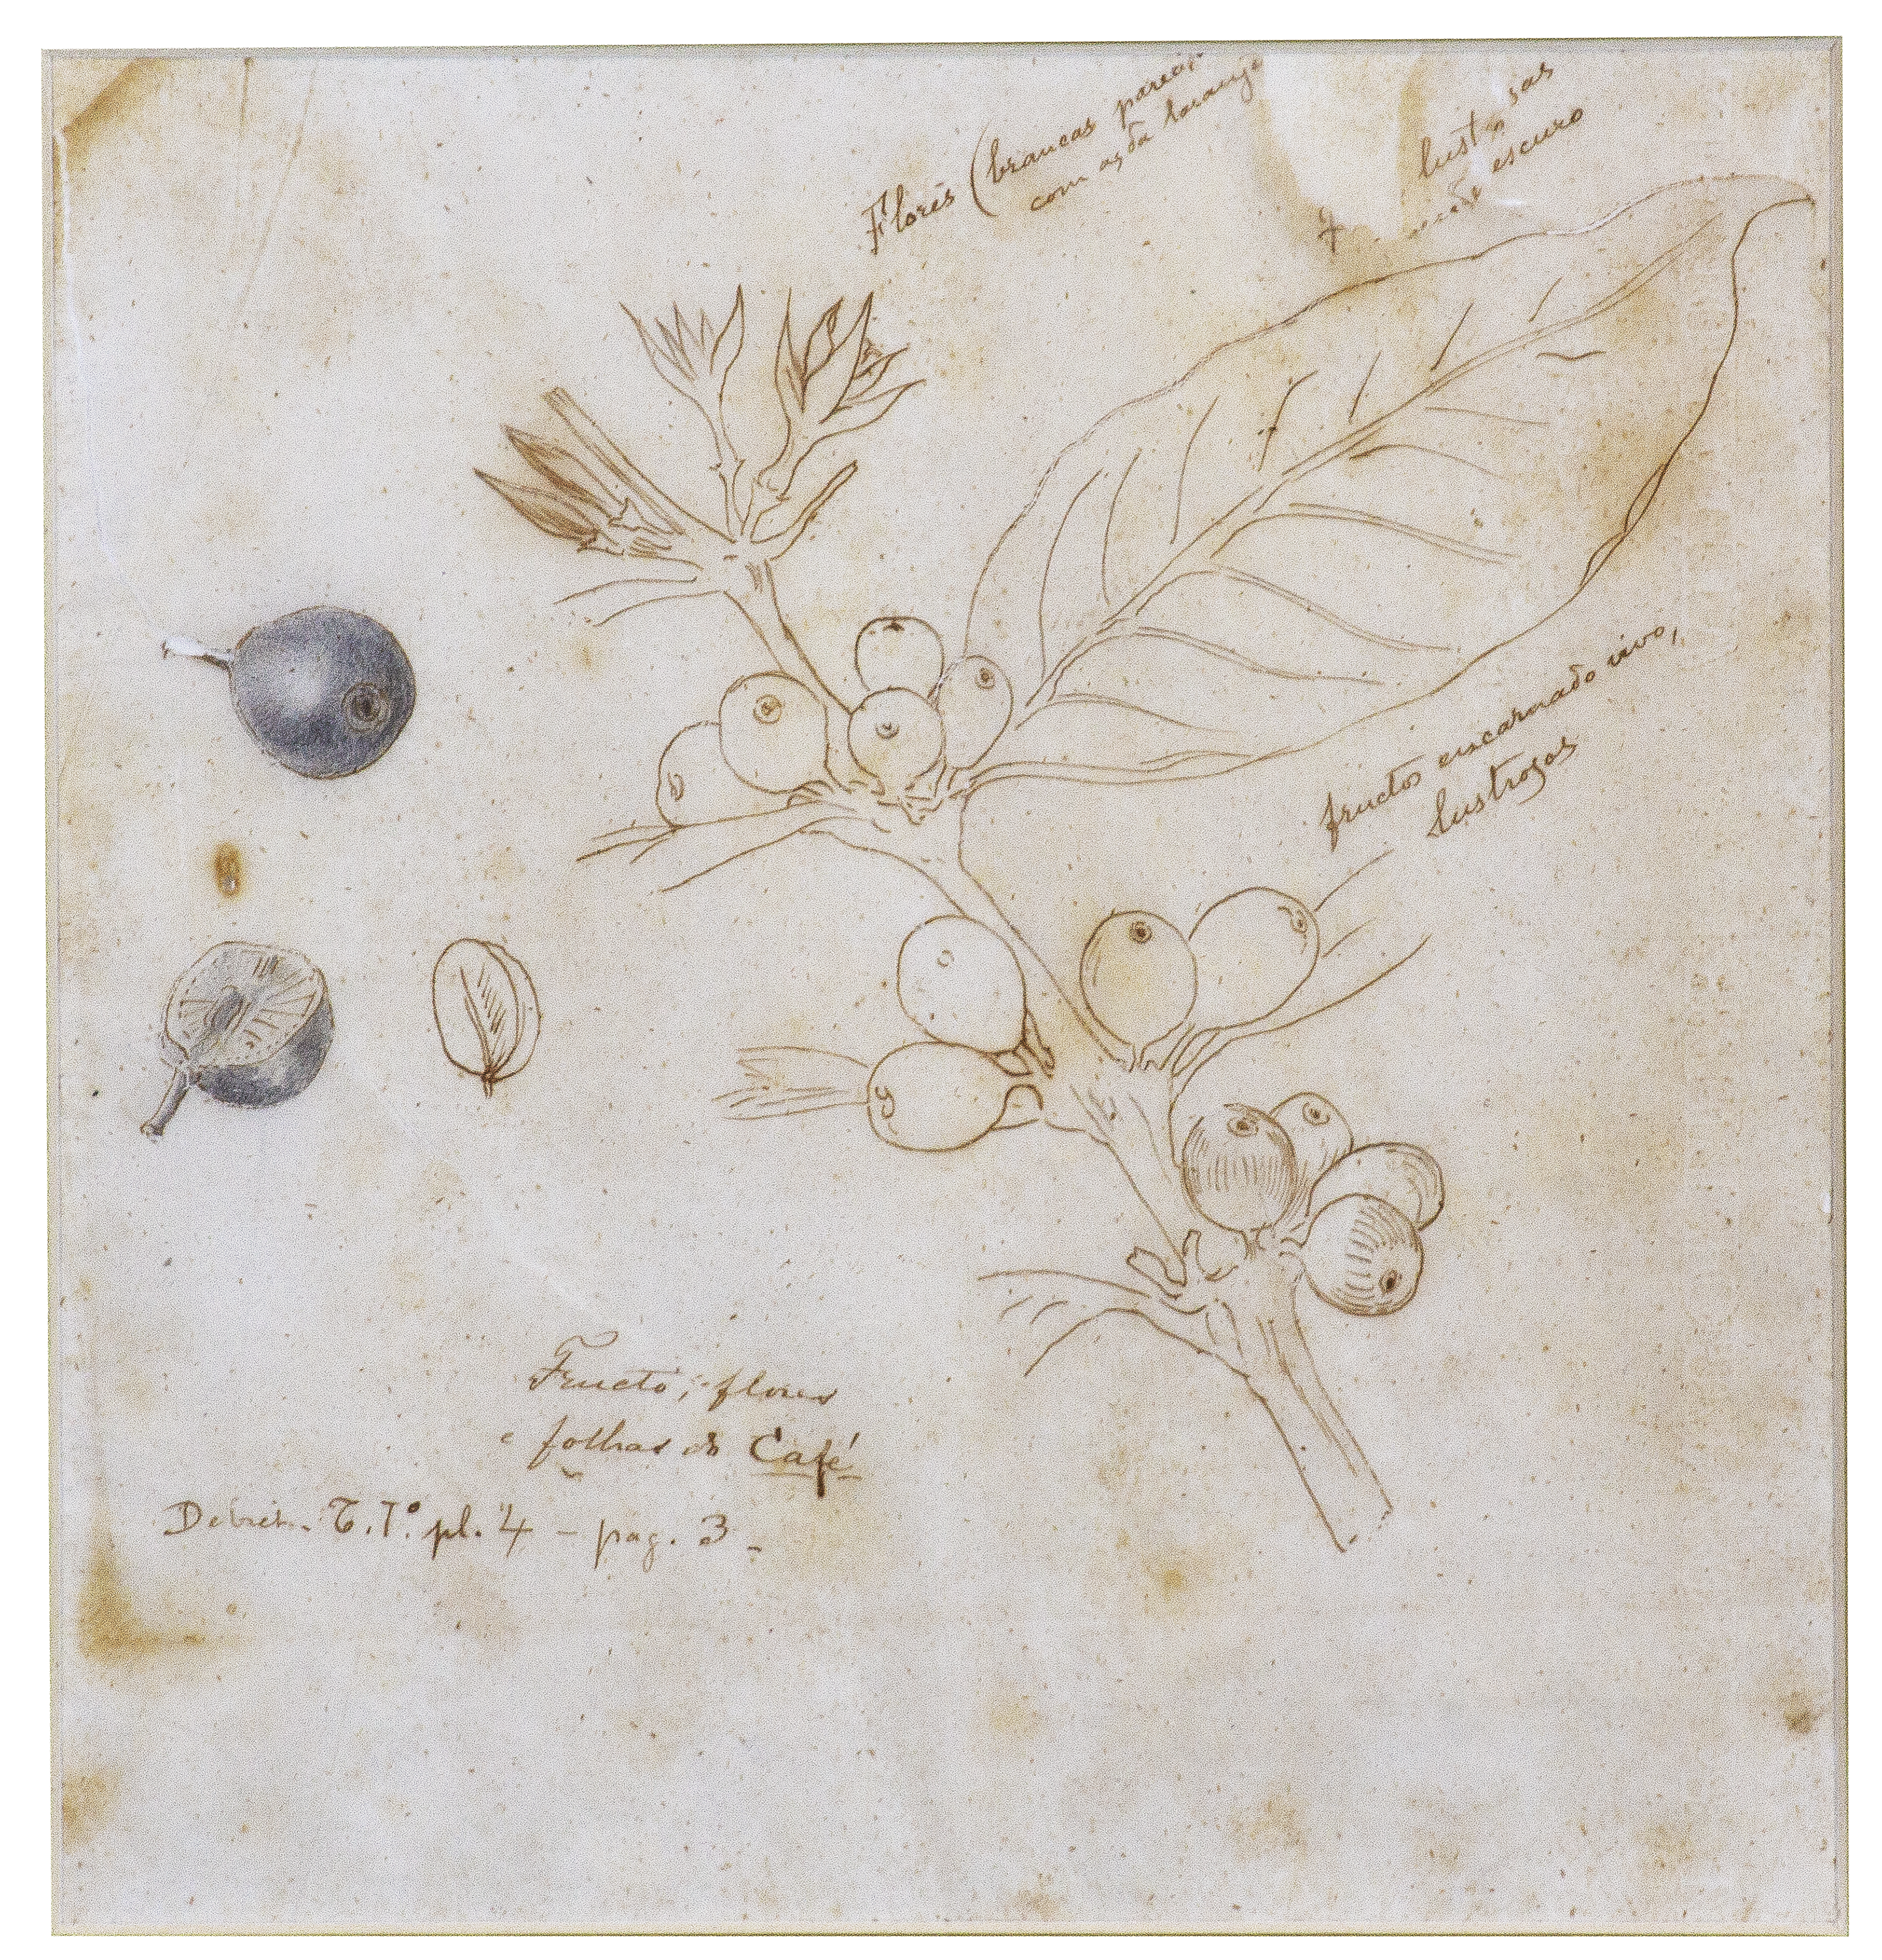 Flores (brancas parecid
com as da laranje
lust sas
verde escuro
fructos encarnado vivo,
lustrosos
Fructo, flores
e folhas do Café
Debret. T. 1º. pl. 4 - pag. 3.